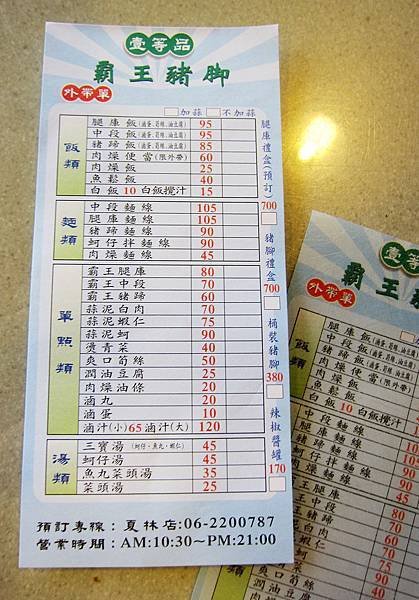 壹等品
霸王豬腳
外帶單
加蒜 不加蒜
飯類
腿庫飯(滷蛋、筍絲、油豆腐) 95
中段飯(滷蛋、筍絲、油豆腐) 95
豬蹄飯(滷蛋、筍絲、油豆腐) 85
肉燥便當(限外帶) 60
肉燥飯 25
魚鬆飯 40
白飯10 白飯攪汁 15
麵類
中段麵線 105
腿庫麵線 105
豬蹄麵線 90
蚵仔拌麵線 90
肉燥麵線 45
單點類
霸王腿庫 80
霸王中段 70
霸王豬蹄 60
蒜泥白肉 70
蒜泥蝦仁 75
蒜泥蚵 90
燙青菜 40
爽口筍絲 50
潤油豆腐 25
肉燥油條 20
滷丸 20
滷蛋 10
滷汁(小)65 滷汁(大) 120
湯類
三寶湯 (蚵仔、魚丸、蝦仁) 45
蚵仔湯 45
魚丸菜頭湯 35
菜頭湯 25
腿庫禮盒(預訂) 700
豬腳禮盒 700
桶裝豬腳 380
辣椒醬罐 170
預訂專線：夏林店:06-2200787
營業時間：AM:10:30～PM:21:00
壹等品
霸王
外帶單
飯類
腿庫飯(滷蛋、筍絲、油豆腐)
中段飯(滷蛋、筍絲、油豆腐)
豬蹄飯(滷蛋、筍絲、油豆腐)
肉燥便當(限外帶)
肉燥飯
魚鬆飯
白飯10 白飯攪汁
麵類
中段麵線
腿庫麵線
豬蹄麵線
蚵仔拌麵線
肉燥麵線
單點類